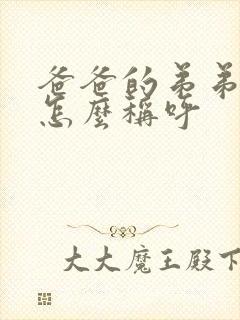 爸爸的弟弟
怎麼稱呼
大大魔王殿下